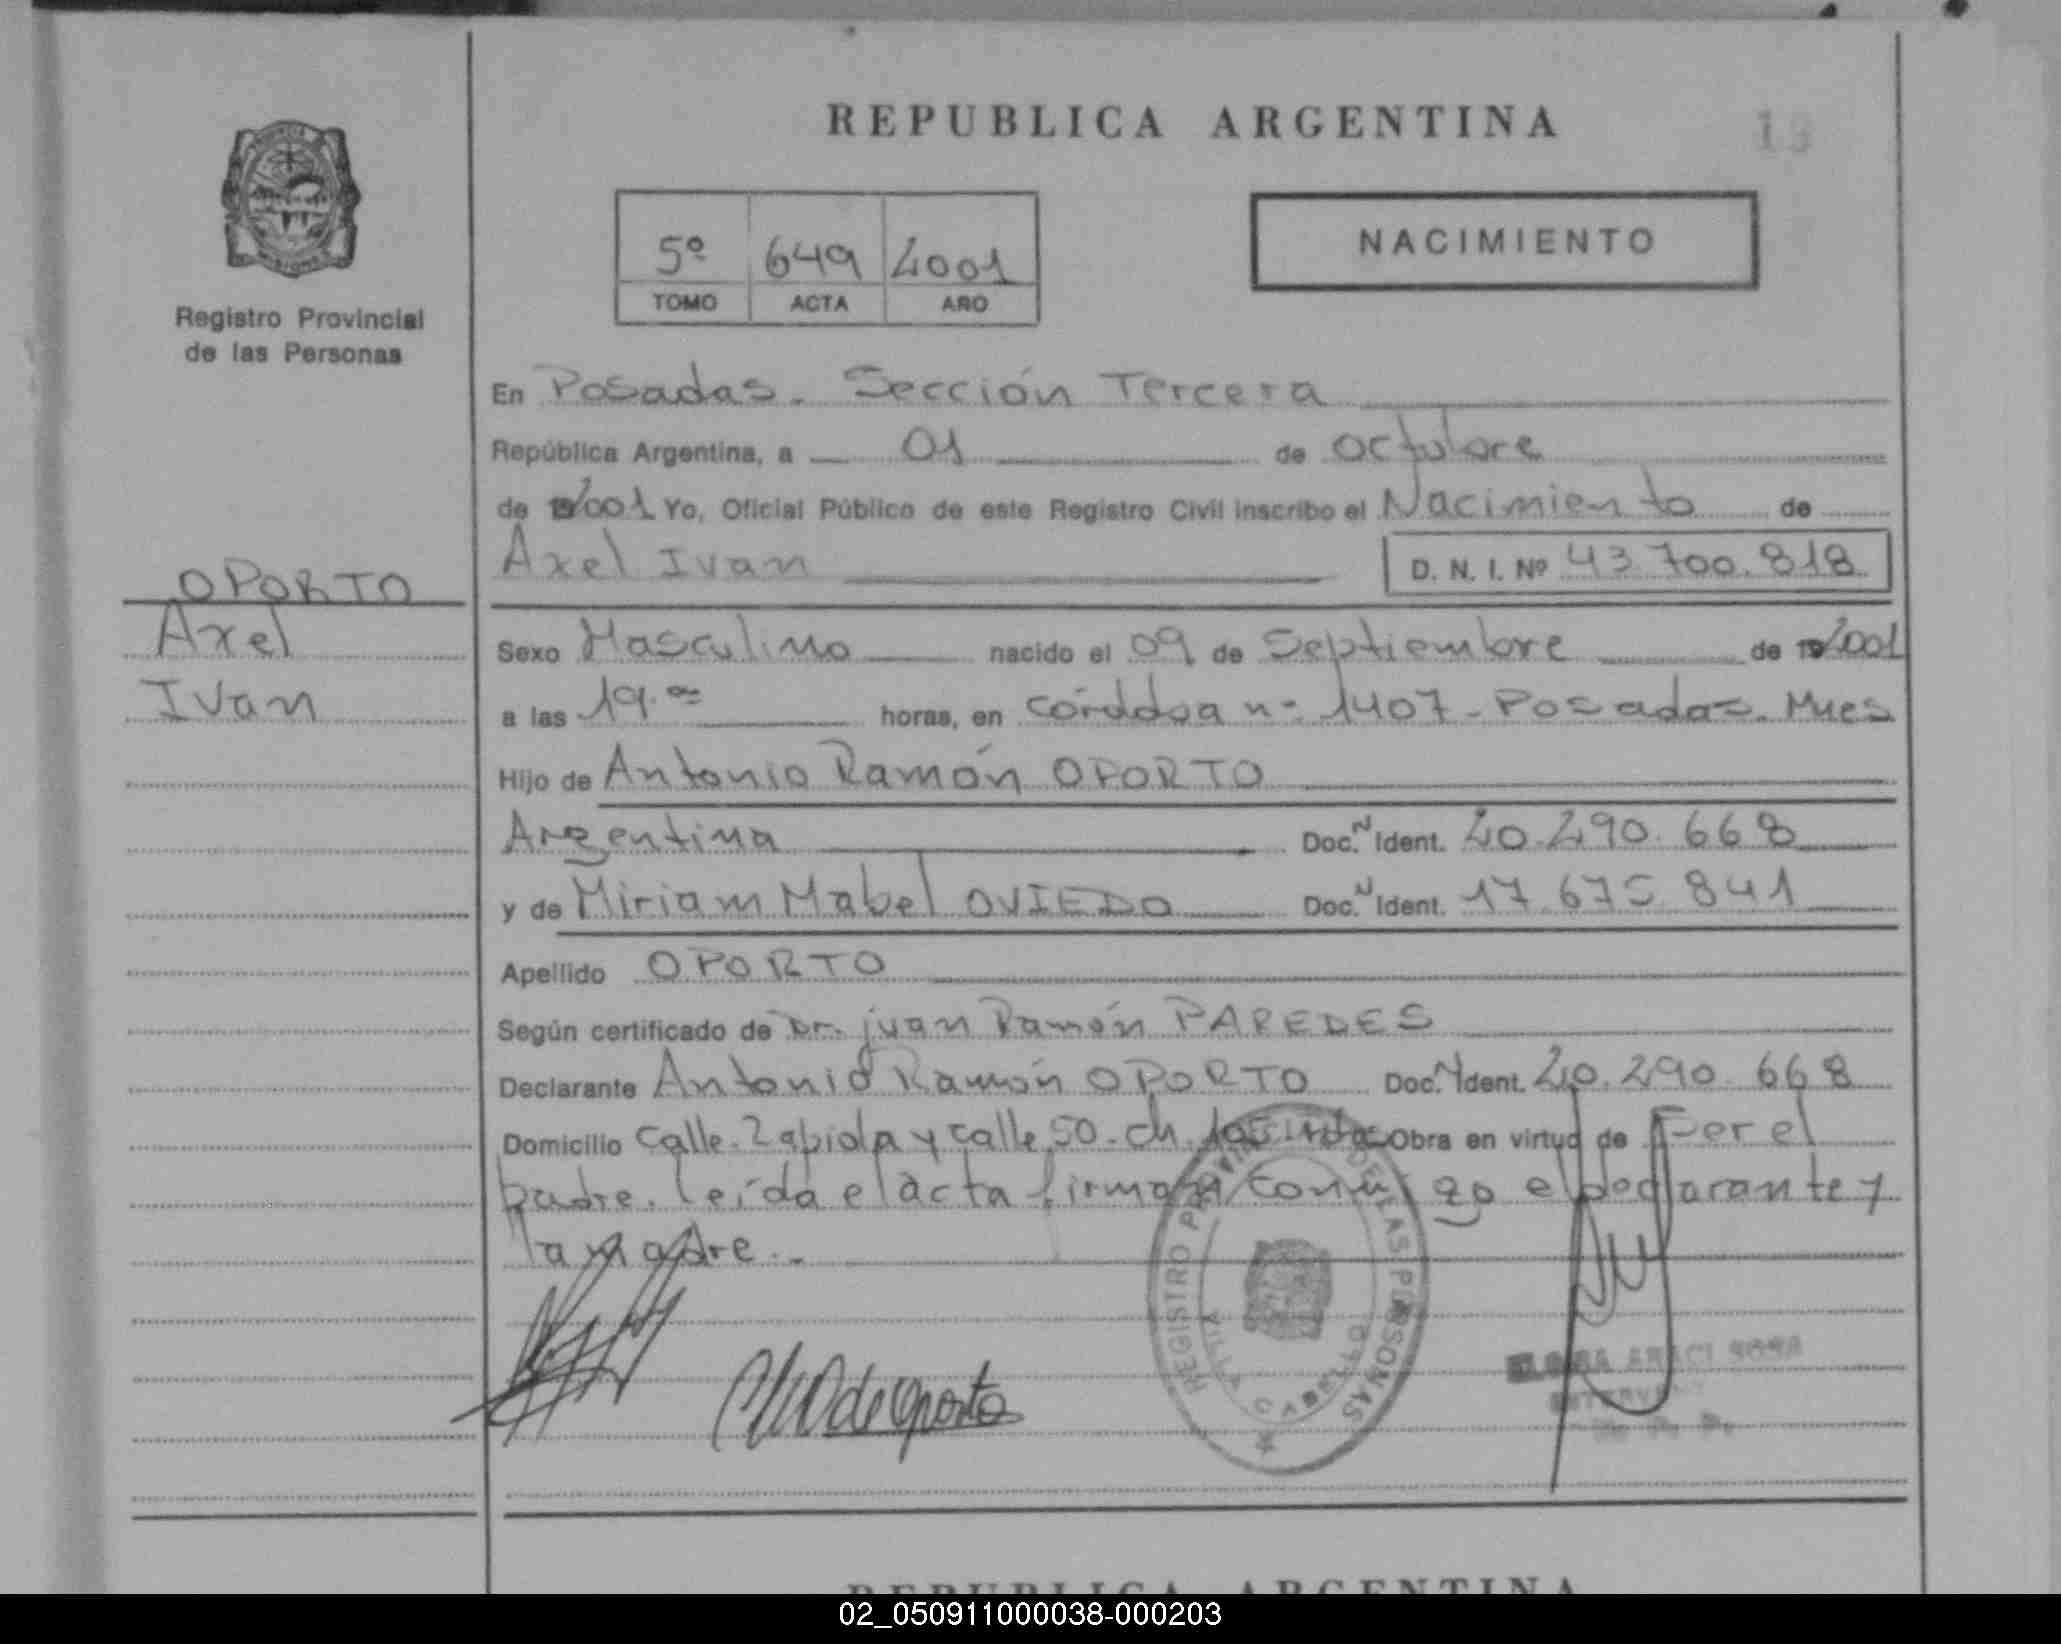 REPUBLICA ARGENTINA
19
NACIMIENTO
5º 649 2001
TOMO ACTA AÑO
Registro Provincial
de las Personas
En Posadas. Sección Tercera
República Argentina, a 01 de octubre
de 2001 Yo, Oficial Público de este Registro Civil inscribo el Nacimiento de
Axel Ivan D. N. I. Nº 43.700.818
OPORTO
Axel
Ivan
Sexo Masculino nacido el 09 de Septiembre de 2001
a las 19.oo horas, en Córdoba nº 1407 - Posadas. Mnes
Hijo de Antonio Ramón OPORTO
Argentina Doc. N Ident. 20.290.668
y de Miriam Mabel OVIEDO Doc. N Ident. 17.675.841
Apellido OPORTO
Según certificado de Dr. Juan Ramón PAREDES
Declarante Antonio Ramón OPORTO Doc. N Ident. 20.290.668
Domicilio Calle. Zapiola y calle 50. ch. Obra en virtud de Ser el
padre. leída el acta firman conmigo el Declarante y
la madre.-
de Oporto
REGISTRO PROVINCIAL DE LAS PERSONAS
VILLA CABELLO
ARACI SOSA
REPUBLICA ARGENTINA
02_050911000038-000203